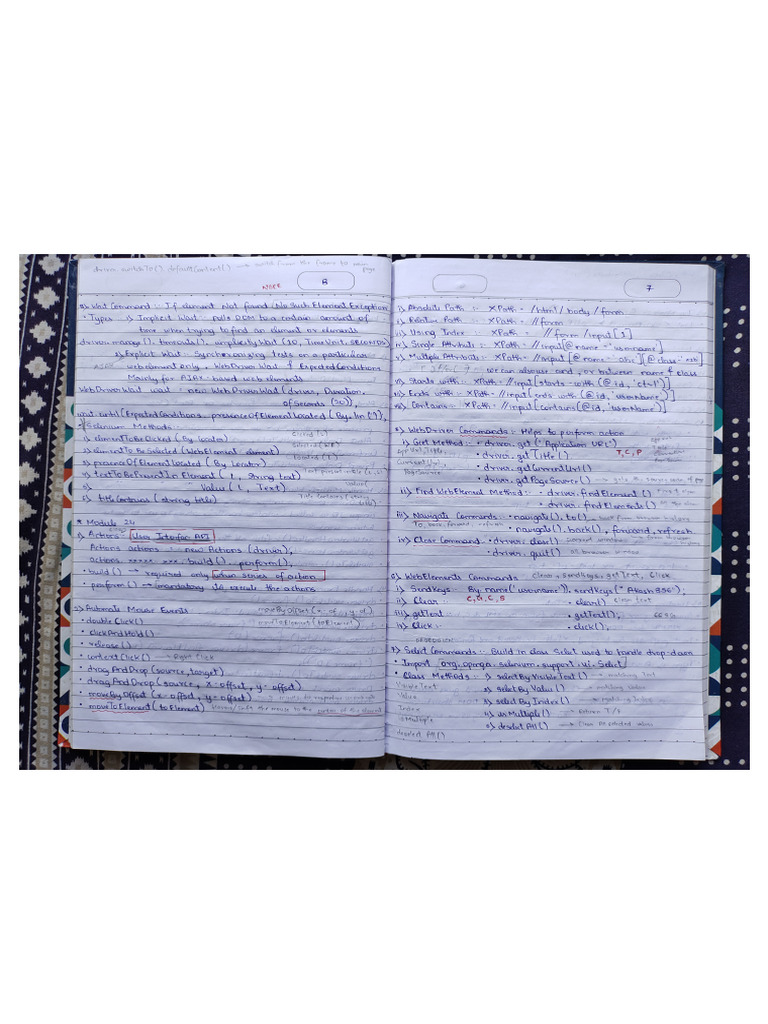 driver.switchTo().defaultContent() → switch from the frame to main page
NSEE
8
*) Wait Command :- If element Not found (No Such Element Exception
• Types :- i) Implicit Wait :- pulls DOM to a certain amount of
time when trying to find an element or elements
driver.manage(). timeouts(). implicitlyWait (10, TimeUnit.SECONDS)
ii) Explicit Wait :- Synchronizing tests on a particular
AJAX webelement only, WebDriver Wait & ExpectedConditions
Mainly for AJAX - based web elements
WebDriverWait wait = new WebDriverWait (driver, Duration.
ofSeconds (30));
wait.until(ExpectedConditions.presenceOfElementLocated (By.
* Selenium Methods :-
i) elementToBeClicked (By locator)
ii) elementToBeSelected (WebElement element)
iii) presenceOfElementLocated (By Locator)
iv) textToBePresentInElement ( l, String text)
v) " Value ( l, Text)
vi) titleContains (string title)
* Module 24
1) Actions :- User Interface API
Actions actions = new Actions (driver);
actions. build(). perform();
• build() → required only when series of action
• perform() → mandatory to execute the actions
2) Automate Mouse Events
moveToElement(toElement)
• doubleClick()
• clickAndHold()
• release()
• contextClick() → Right Click
• dragAndDrop (source, target)
• dragAndDrop (source, x-offset, y-offset)
• moveByOffset (x-offset, y-offset)
• moveToElement (toElement) the mouse to the centre of the element
7
i) Absolute Path :- XPath = /html/body/form
ii) Relative Path :- XPath = //form
iii) Using Index :- XPath = //form/input[1]
iv) Single Attribute :- XPath = //input[@name='username']
v) Multiple Attribute :- XPath = //input[@name='abc'][@class='esh']
we can also use and, or between name & class
vi) Starts with :- XPath = //input[starts-with(@id,'ctl-1')]
vii) Ends with :- XPath = //input[ends with(@id,'username')]
viii) Contains :- XPath = //input[contains(@id,'username')]
5) WebDriver Commands :- Helps to perform action
i) Get Method :- • driver.get("Application URL")
• driver.getTitle()
T, C, P
• driver.getCurrentUrl()
• driver.getPageSource()
ii) Find WebElement Method :- • driver.findElement()
• driver.findElements()
iii) Navigate Commands :- • navigate().to()
To, back, forward, refresh
• navigate().back(), forward, refresh
iv) Close Command • driver.close()
• driver.quit()
6) WebElements Commands Clear, Sendkeys, getText, Click
i) SendKeys :- By.name("username")).sendkeys("Akash 856");
C, G, C, S
ii) Clear :- • clear() Clear text
iii) getText • getText();
iv) Click :- • click();
7) Select Commands :- Build in class Select used to handle drop-down
• Import org.openqa.selenium.support.ui.Select
• Class Methods :- i) selectByVisibleText() → matching Text
Visible Text
ii) selectByValue() → matching Values
Value
iii) selectByIndex() → matching Index
Index
iv) isMultiple() → Return T/F
isMultiple
v) deselectAll() → Clear all selected values
deselect All()